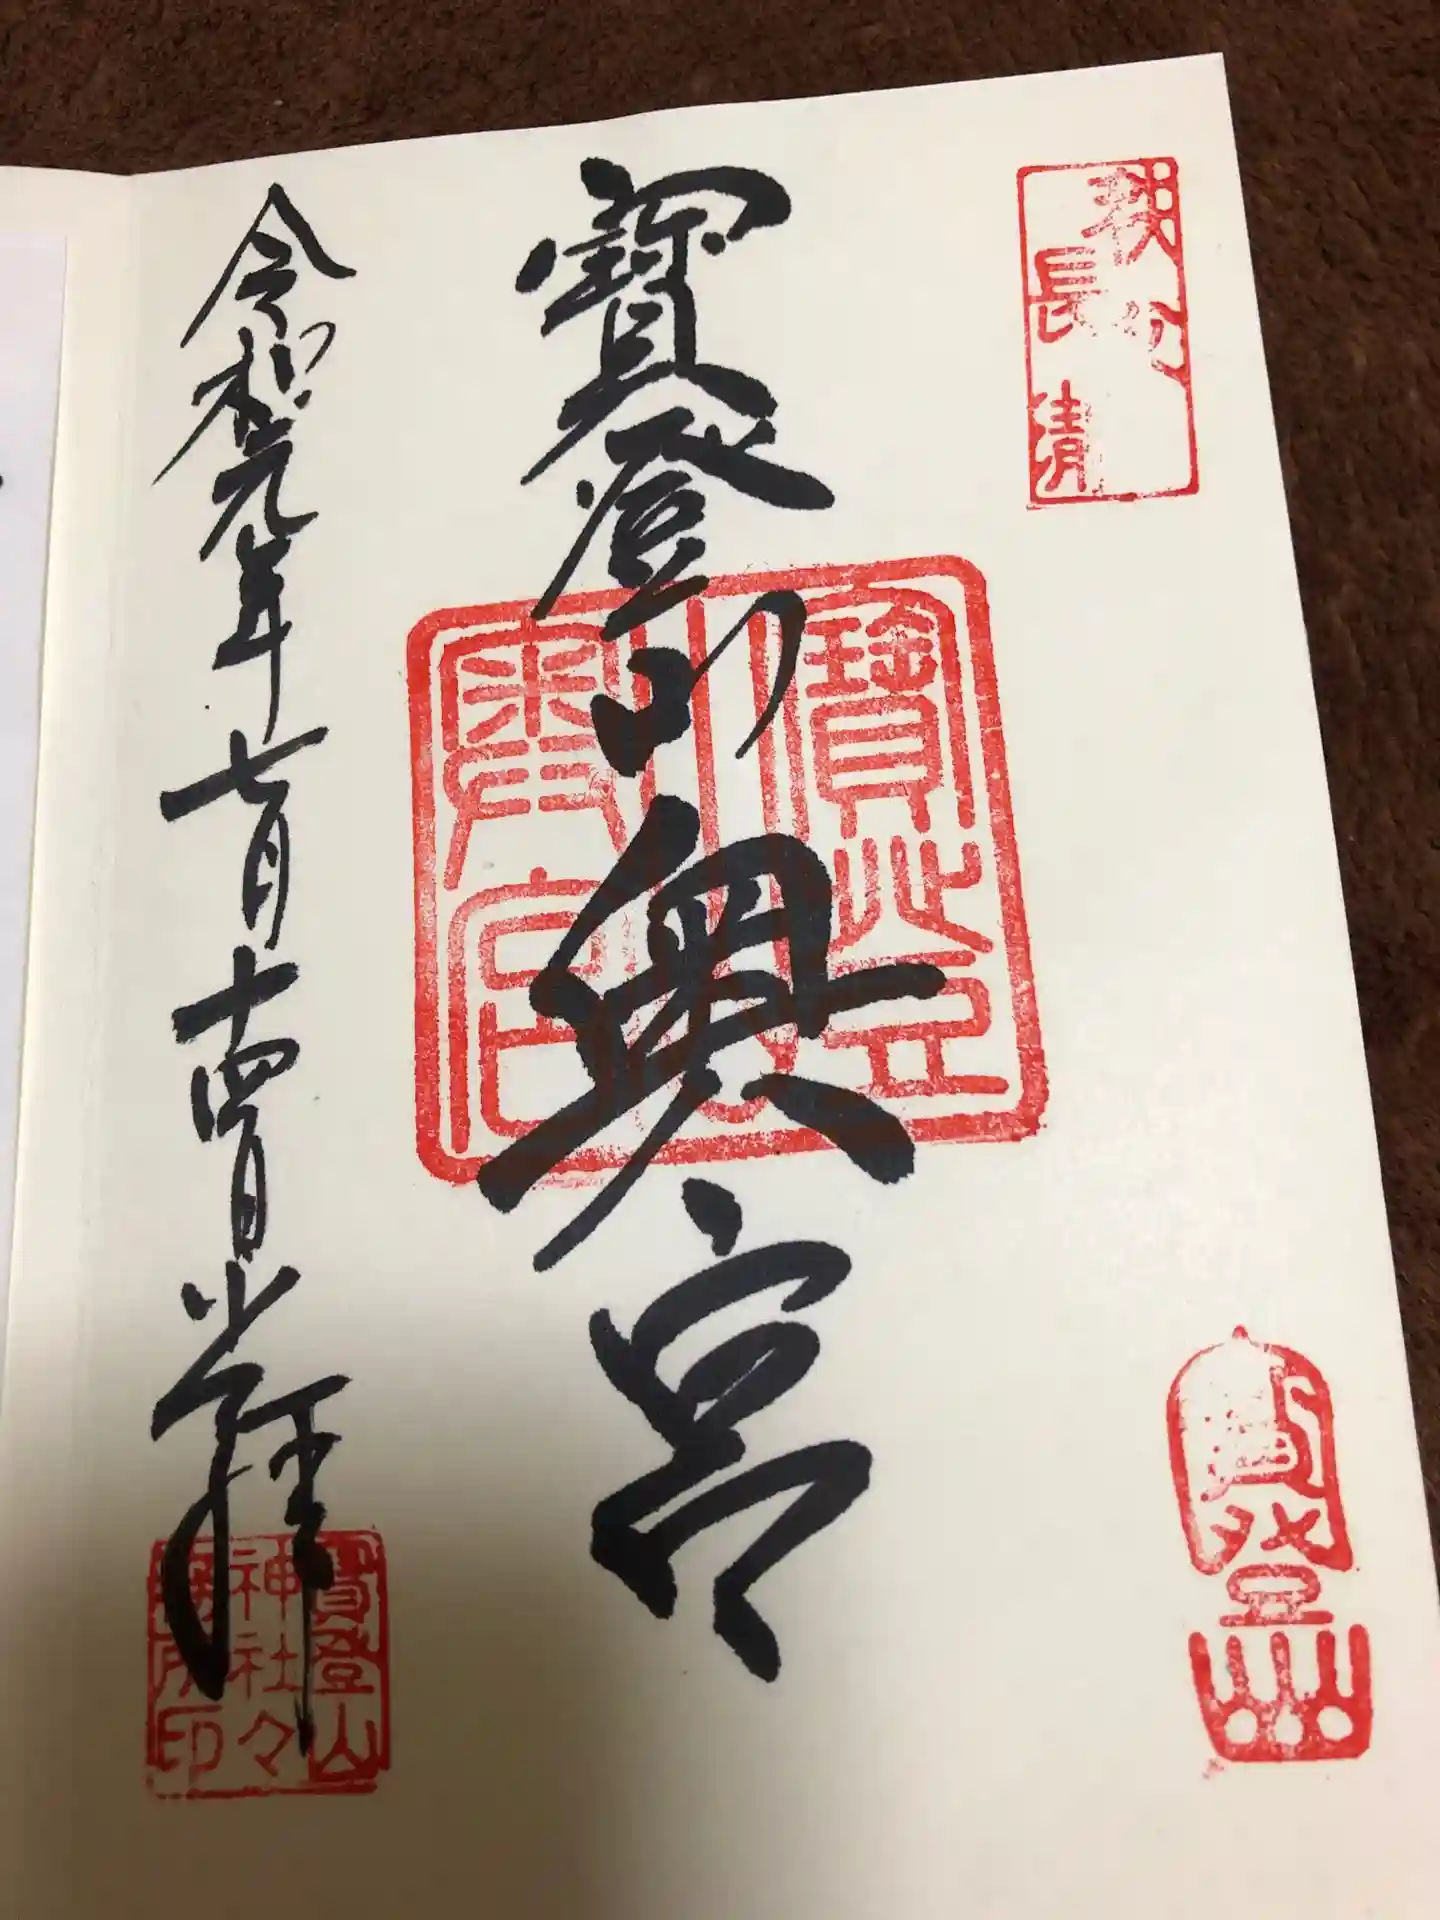 秩父
長瀞
寶登山
寶登山奥宮
寶登
山
奥宮
令和元年七月十四日
拝
寶登山
神社々
務所印